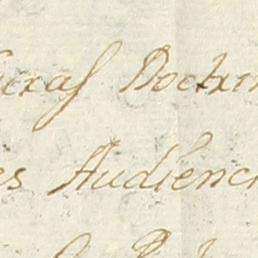 eras Doctrin
es Audienc